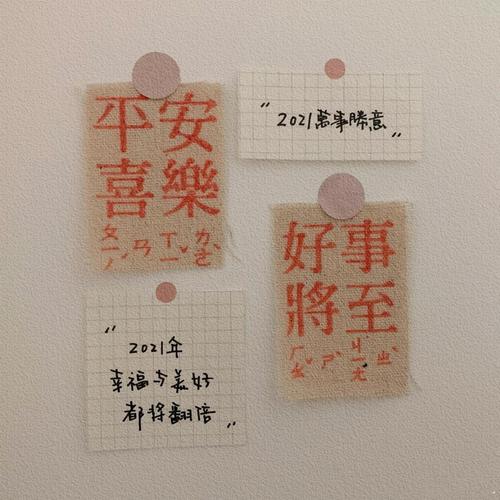 平安
喜樂
ㄆㄧㄥˊ ㄢ ㄒㄧˇ ㄌㄜˋ
"2021萬事勝意"
好事
將至
ㄏㄠˇ ㄕˋ ㄐㄧㄤ ㄓˋ
"2021年
幸福与美好
都将翻倍"